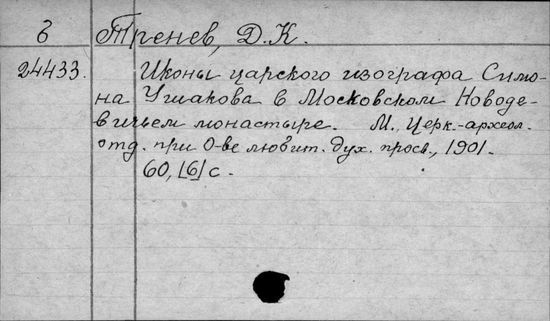 6 Тренев, Д.К.
24433. Иконы царского изографа Симо-
на Ушакова в Московском Новоде-
вичьем монастыре. М., Церк.-археол.
отд. при О-ве любит. дух. просв., 1901.
60, [6] с.